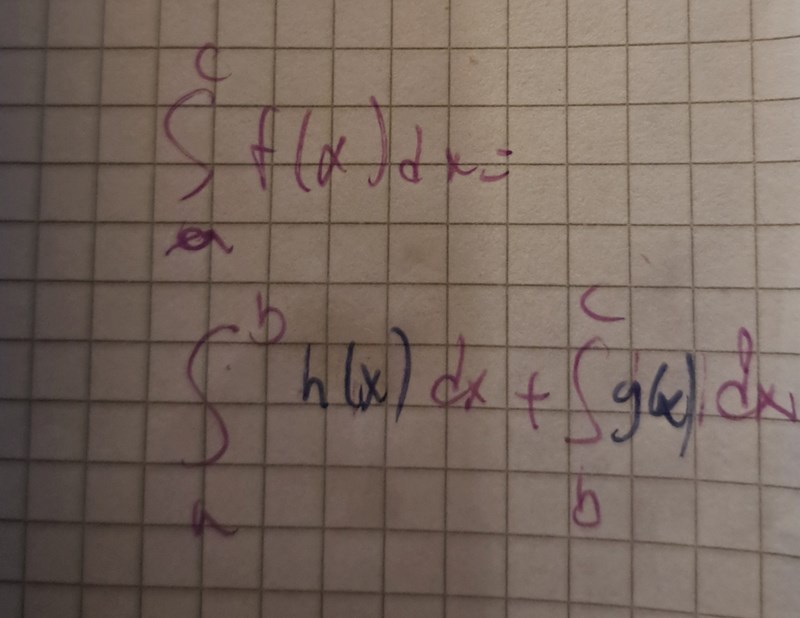 ∫ₐᶜ f(x)dx=
∫ₐᵇ h(x) dx + ∫_b^c g(x) dx